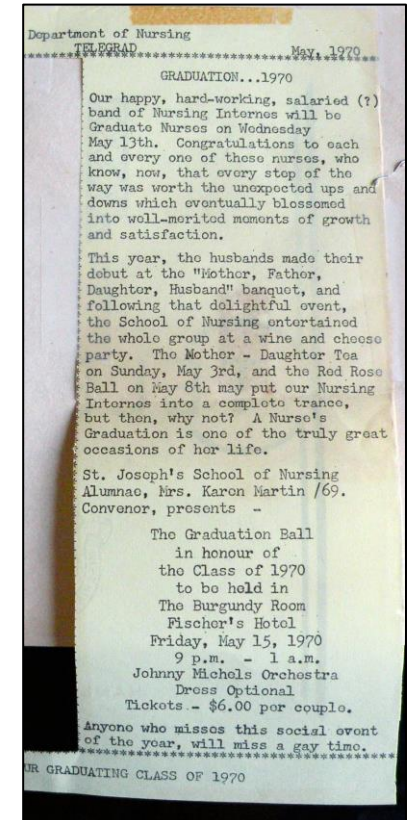 Department of Nursing
TELEGRAD May, 1970
GRADUATION...1970
Our happy, hard-working, salaried (?)
band of Nursing Internes will be
Graduate Nurses on Wednesday
May 13th. Congratulations to each
and every one of these nurses, who
know, now, that every step of the
way was worth the unexpected ups and
downs which eventually blossomed
into well-merited moments of growth
and satisfaction.
This year, the husbands made their
debut at the "Mother, Father,
Daughter, Husband" banquet, and
following that delightful event,
the School of Nursing entertained
the whole group at a wine and cheese
party. The Mother - Daughter Tea
on Sunday, May 3rd, and the Red Rose
Ball on May 8th may put our Nursing
Internes into a complete trance,
but then, why not? A Nurse's
Graduation is one of the truly great
occasions of her life.
St. Joseph's School of Nursing
Alumnae, Mrs. Karen Martin /69.
Convenor, presents -
The Graduation Ball
in honour of
the Class of 1970
to be held in
The Burgundy Room
Fischer's Hotel
Friday, May 15, 1970
9 p.m. - 1 a.m.
Johnny Michels Orchestra
Dress Optional
Tickets - $6.00 per couple.
Anyone who misses this social event
of the year, will miss a gay time.
UR GRADUATING CLASS OF 1970